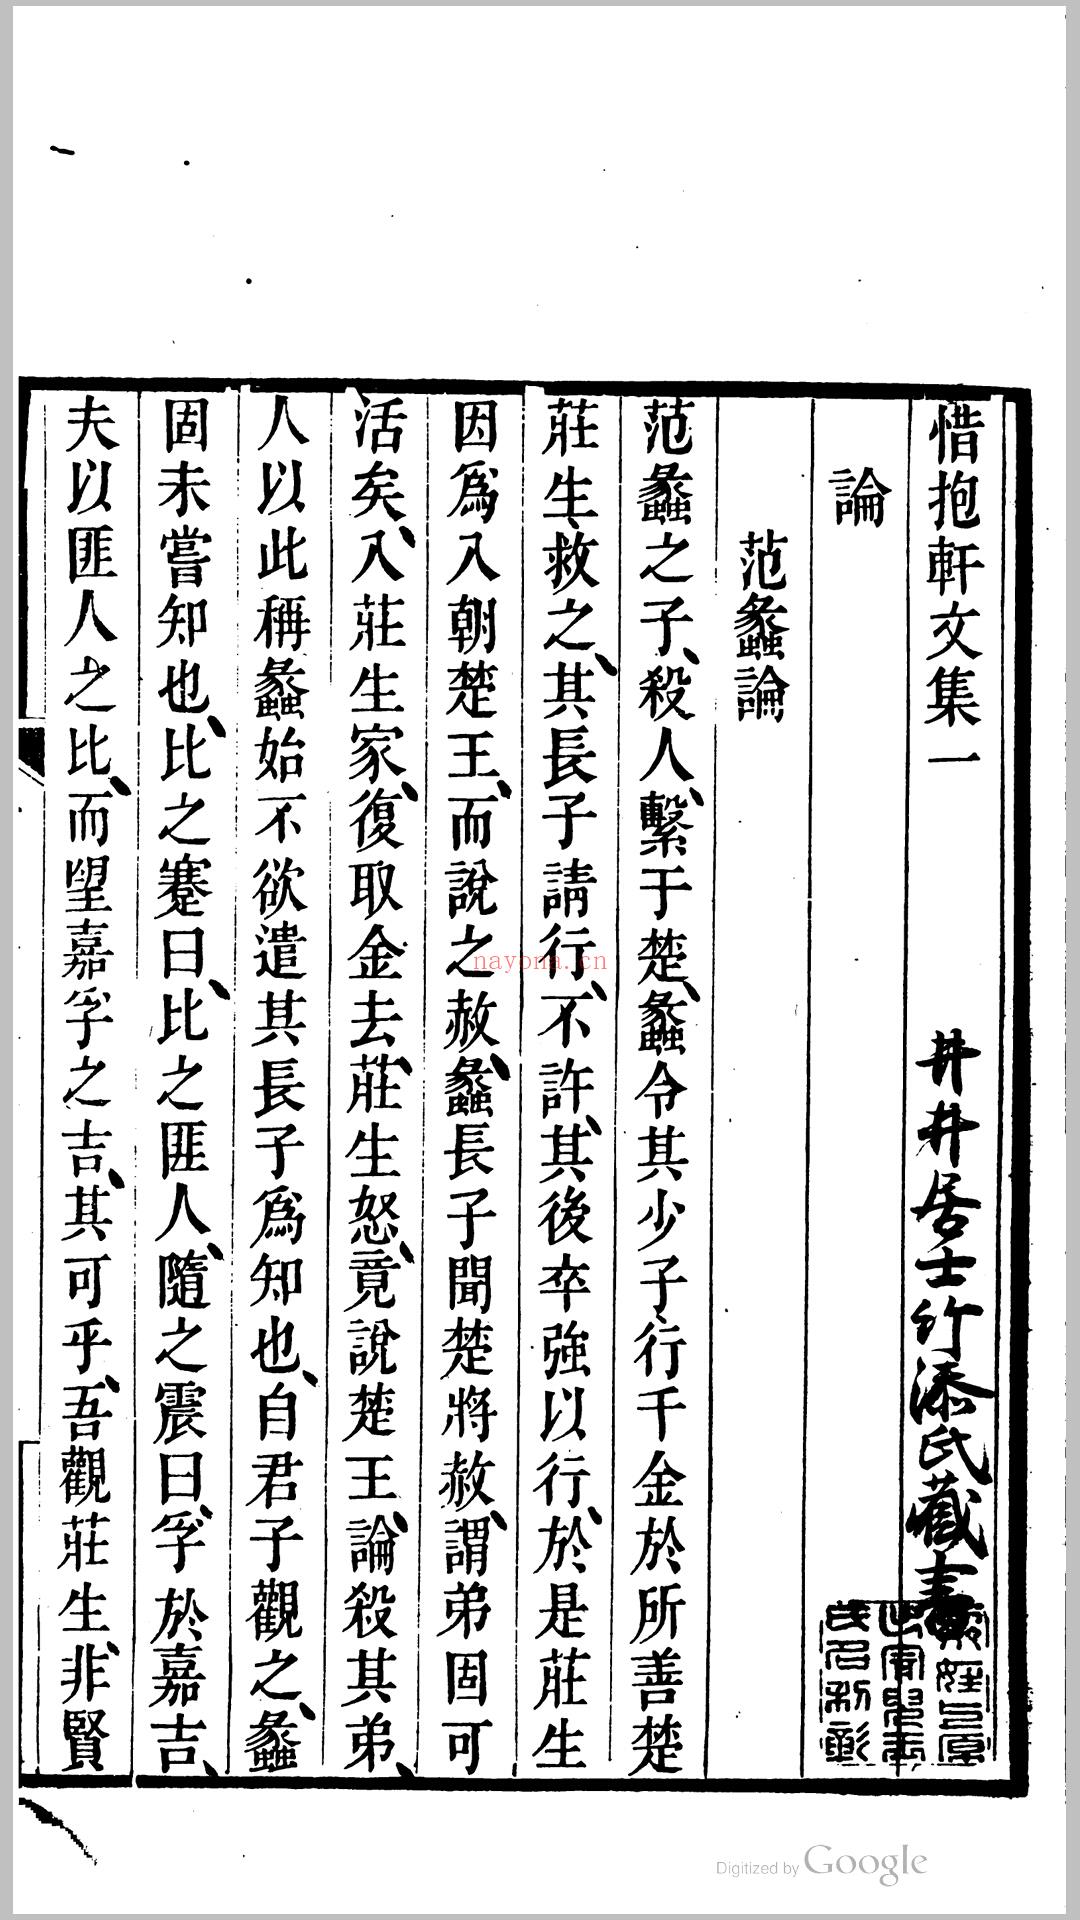 惜抱軒文集一
井井居士竹添氏藏書
論
范蠡論
范蠡之子、殺人、繫于楚、蠡令其少子、行千金於所善楚
莊生、救之、其長子請行、不許、其後卒強以行、於是莊生
因爲入朝楚王、而說之赦、蠡長子聞楚將赦、謂弟固可
活矣、入莊生家、復取金去、莊生怒、竟說楚王、論殺其弟、
人以此稱蠡始不欲遣其長子爲知也、自君子觀之、蠡
固未嘗知也、比之蹇曰、比之匪人、隨之震曰、孚於嘉吉、
夫以匪人之比、而望嘉孚之吉、其可乎、吾觀莊生、非賢
nayona.cn
Digitized by Google